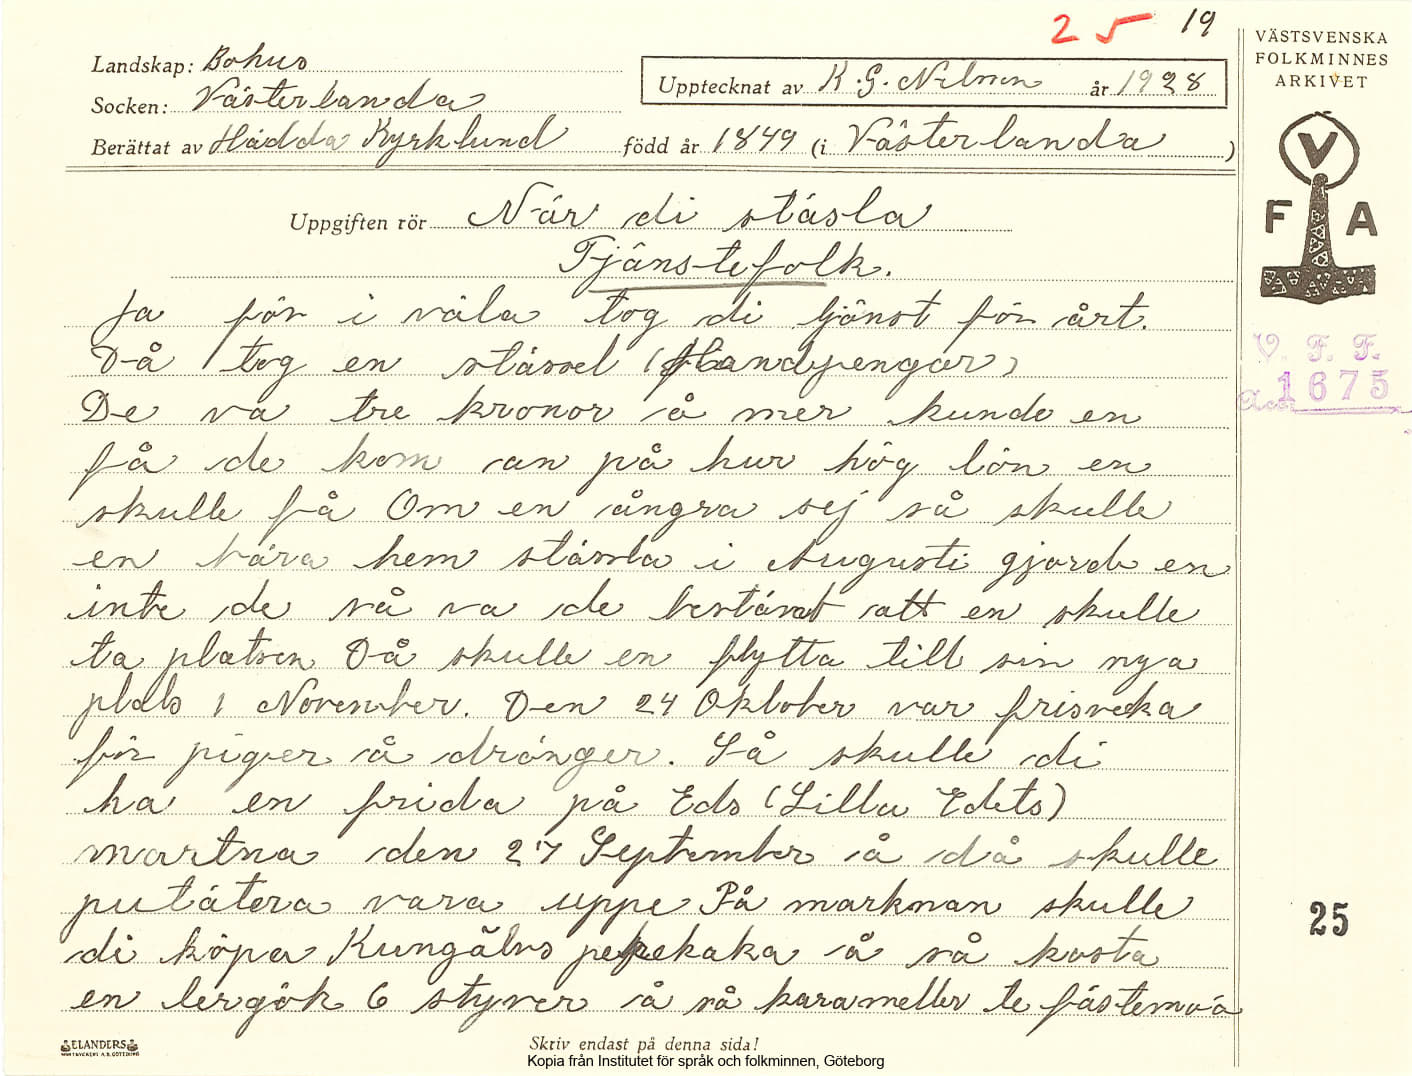 25 19
Landskap: Bohus
Socken: Västerlanda
Upptecknat av K. G. Nilsson år 1928
Berättat av Hädda Kyrklund född år 1849 (i Västerlanda)
Uppgiften rör När di stäsla
Tjänstefolk.
Ja för i väla tog di tjänst för årt.
Då tog en stässel (Handpengar)
De va tre kronor å mer kunde en
få de kom an på hur hög lön en
skulle få Om en ångra sej så skulle
en bära hem stässla i Augusti gjorde en
inte de så va de bestämt att en skulle
ta platsen Då skulle en flytta till sin nya
plats 1 November. Den 24 Oktober var frisveka
för piger å dränger. Så skulle di
ha en frida på Eds (Lilla Edets)
martna den 27 September å då skulle
putätera vara uppe På marknan skulle
di köpa Kungälvs pepekaka å så kosta
en lergök 6 styver å så karameller te fästemöa
VÄSTSVENSKA
FOLKMINNES
ARKIVET
V
F A
V. F. F.
Acc. 1675
25
ELANDERS
Skriv endast på denna sida!
Kopia från Institutet för språk och folkminnen, Göteborg